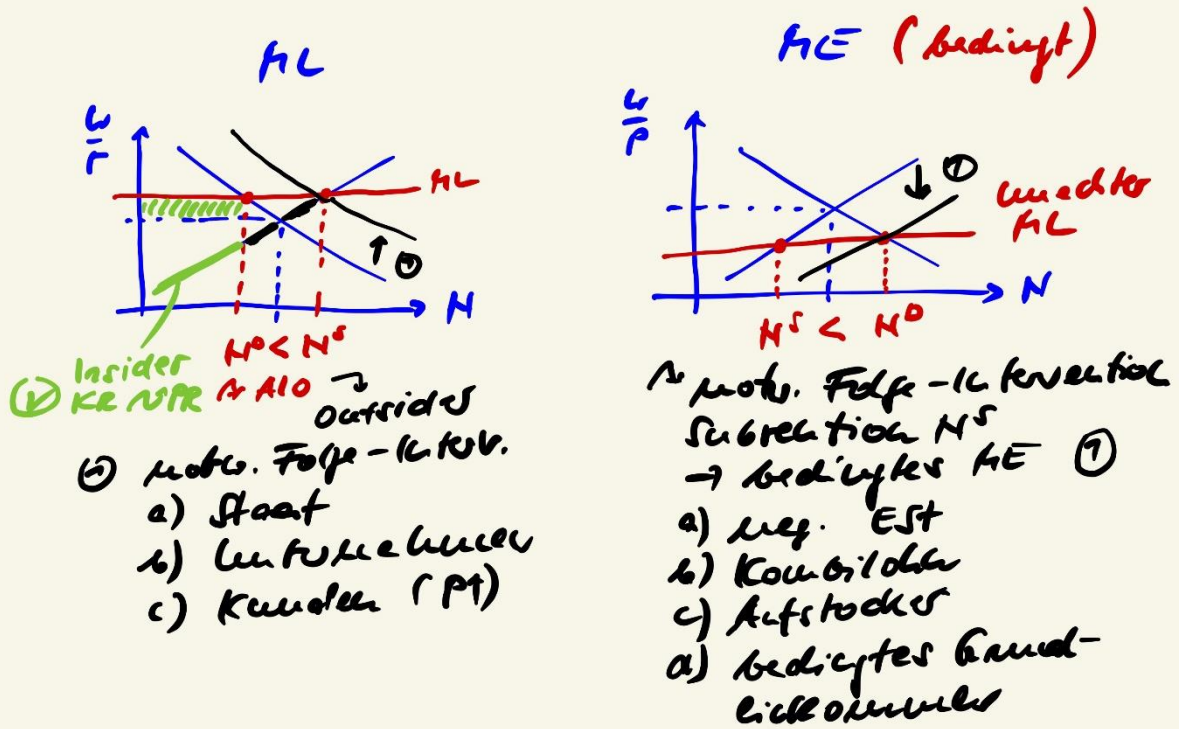 ML
W/P
ML
N
N^D < N^S
Insider
KR
⇝ ALO
Outsider
notw. Folge-Interv.
a) Staat
b) Unternehmer
c) Kunden (P↑)
ME (bedingt)
W/P
↓ ①
unechter
ML
N
N^S < N^D
⇝ notw. Folge-Intervention
Subvention N^S
→ bedingtes ME ①
a) neg. ESt
b) Kombilohn
c) Aufstocker
d) bedingtes Grund-
einkommen